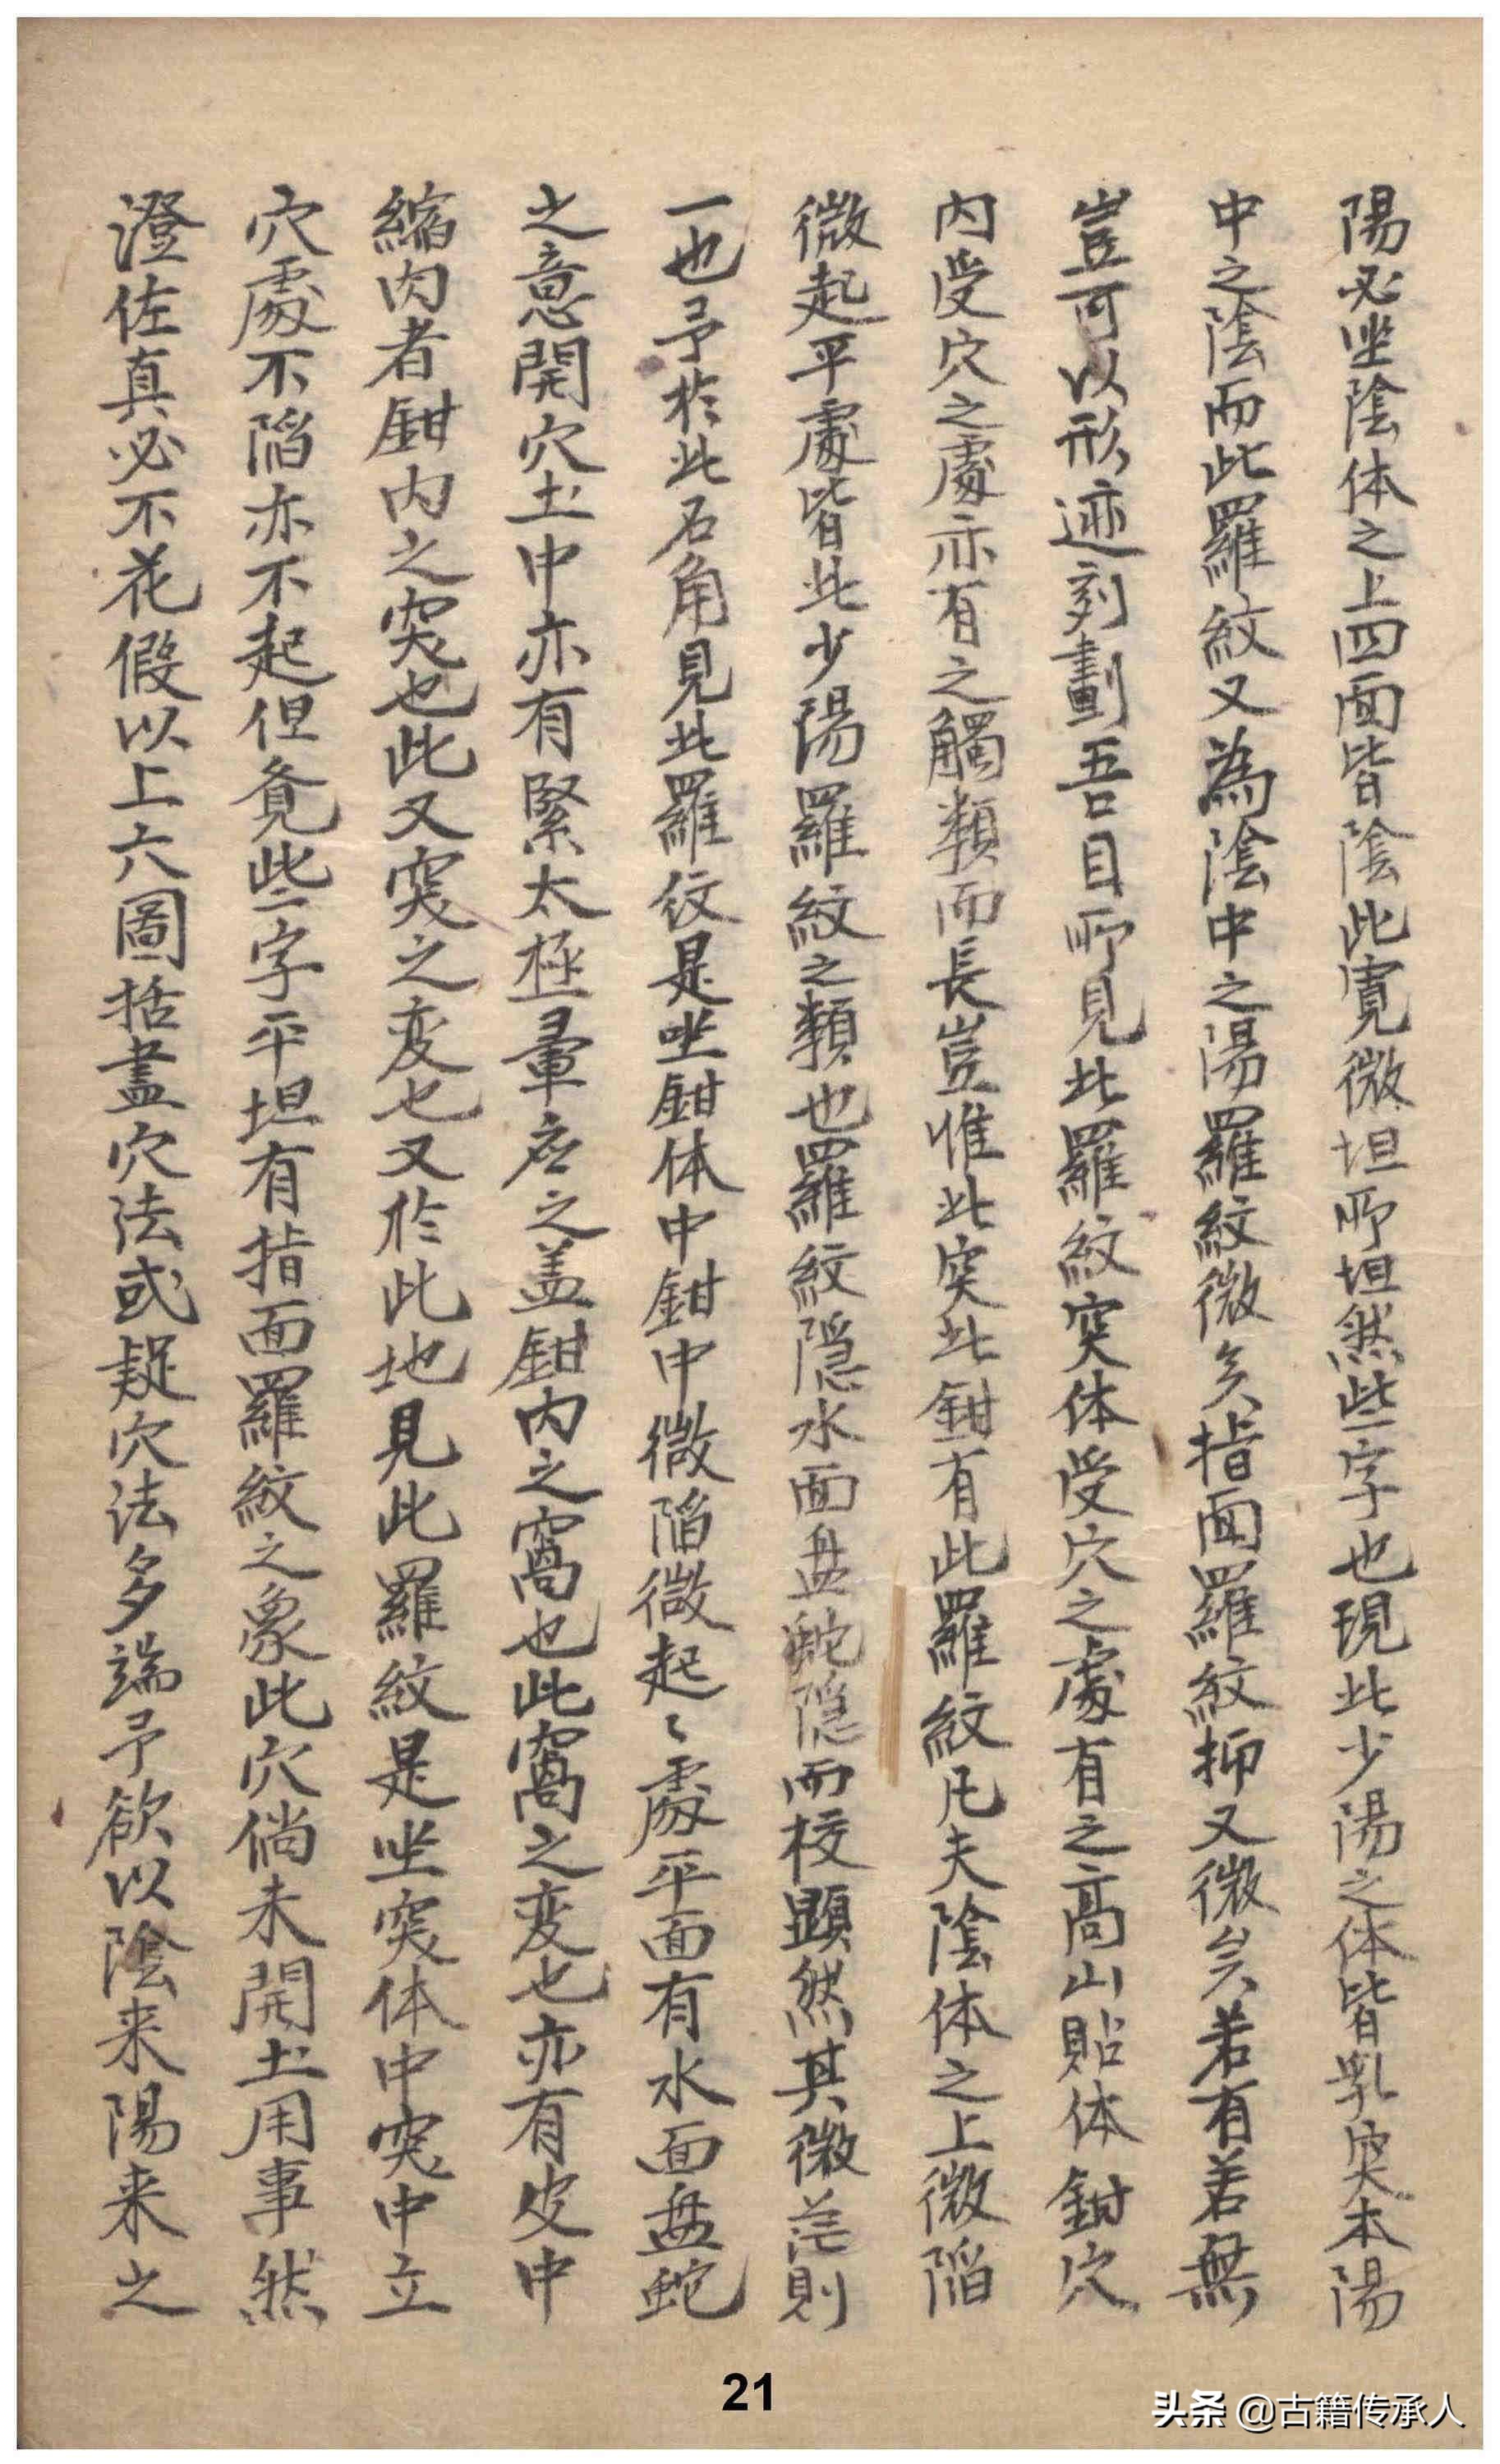 陽必坐陰体之上四面皆陰此寬微坦所坦然些字也現此少陽之体皆乳突本陽
中之陰而此羅紋又為陰中之陽羅紋微矣指面羅紋抑又微矣若有若無
豈可以形迹刻劃吾目所見此羅紋突体受穴之處有之高山貼体鉗穴
内受穴之處亦有之觸類而長豈惟此突此鉗有此羅紋凡夫陰体之上微陷
微起平處皆此少陽羅紋之類也羅紋隠水面盘蛇隠而校顕然其微茫則
一也予於此石角見此羅纹是坐鉗体中鉗中微陷微起〻處平面有水面盘蛇
之意開穴土中亦有緊太極暈应之盖鉗内之窩也此窩之变也亦有皮中
縮肉者鉗内之突也此又突之変也又於此地見此羅紋是坐突体中突中立
穴處不陷亦不起但覓些字平坦有指面羅紋之象此穴倘未開土用事然
澄佐真必不花假以上六圖括盡穴法或疑穴法多端予欲以陰来陽来之
21
头条 @古籍传承人